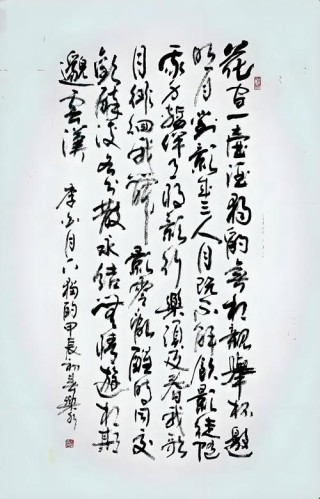 花間一壺酒獨酌無相親舉杯邀
明月對影成三人月既不解飲影徒隨
我身暫伴月將影行樂須及春我歌
月徘徊我舞影零亂醒時同交
歡醉後各分散永結無情遊相期
邈雲漢
李白月下獨酌甲辰初春